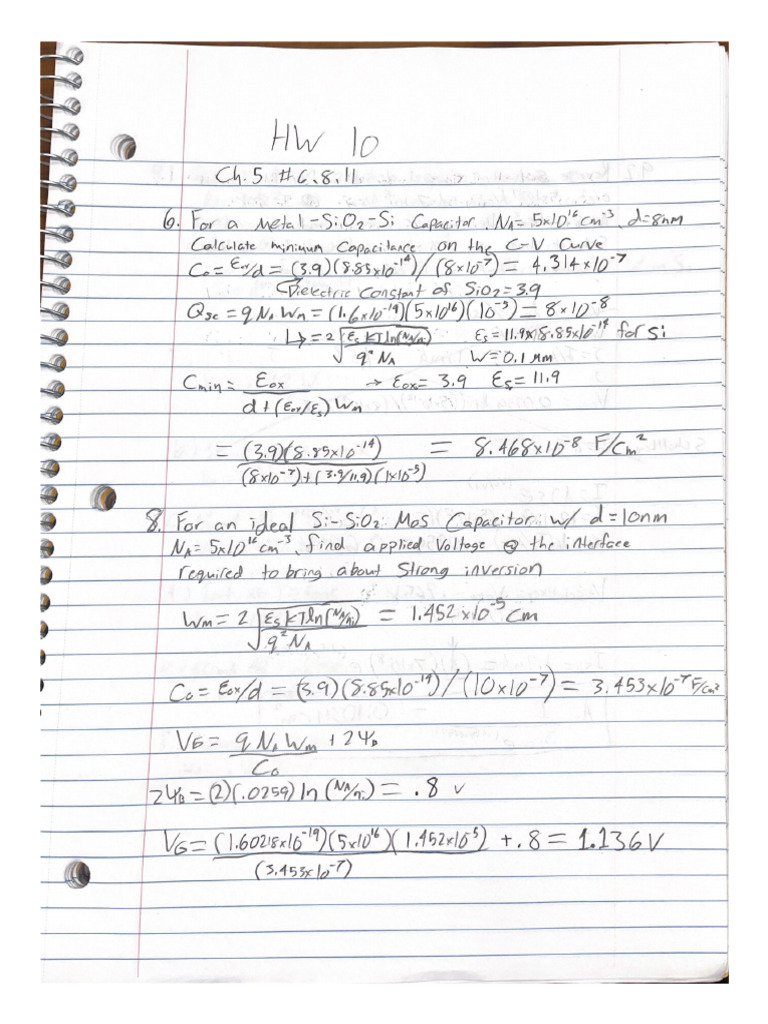 HW 10
Ch. 5 #6, 8, 11
6. For a Metal-SiO₂-Si Capacitor, NA = 5x10¹⁶ cm⁻³, d=8nm
Calculate minimum Capacitance on the C-V Curve
C₀ = εox/d = (3.9)(8.85x10⁻¹⁴)/(8x10⁻⁷) = 4.314x10⁻⁷
Dielectric Constant of SiO₂=3.9
Qsc = q NA Wm = (1.6x10⁻¹⁹)(5x10¹⁶)(10⁻⁵) = 8x10⁻⁸
↳ = 2 √(εs kT ln(NA/ni) / q² NA) εs = 11.9x8.85x10⁻¹⁴ for Si
W = 0.1 µm
Cmin = εox / (d + (εox/εs) Wm) → εox = 3.9 εs = 11.9
= (3.9)(8.85x10⁻¹⁴) / ((8x10⁻⁷) + (3.9/11.9)(1x10⁻⁵)) = 8.468x10⁻⁸ F/cm²
8. For an ideal Si-SiO₂ MOS Capacitor w/ d=10nm
NA = 5x10¹⁶ cm⁻³, find applied Voltage @ the interface
required to bring about Strong inversion
Wm = 2 √(εs kT ln(NA/ni) / q² NA) = 1.452x10⁻⁵ cm
C₀ = εox/d = (3.9)(8.85x10⁻¹⁴)/(10x10⁻⁷) = 3.453x10⁻⁷ F/cm²
VG = q NA Wm / C₀ + 2ψB
2ψB = (2)(.0259) ln (NA/ni) = .8 v
VG = (1.60218x10⁻¹⁹)(5x10¹⁶)(1.452x10⁻⁵) / (3.453x10⁻⁷) + .8 = 1.136V